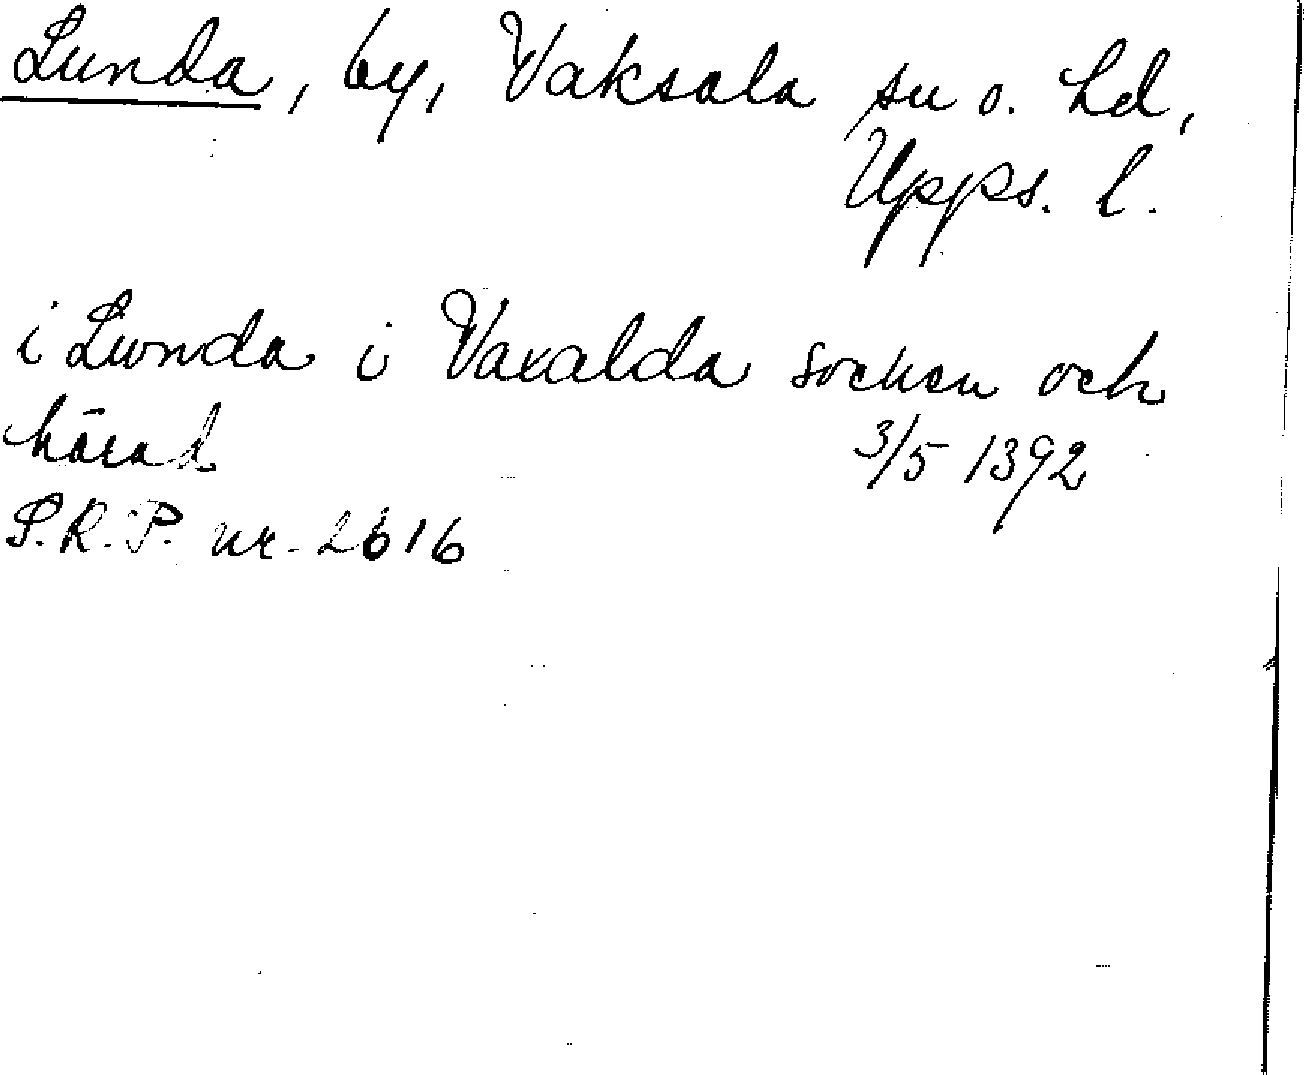 Lunda, by, Vaksala sn o. hd,
Upps. l.
i Lunda i Vaxalda socken och
härad 3/5 1392
S.R.P. nr. 2616